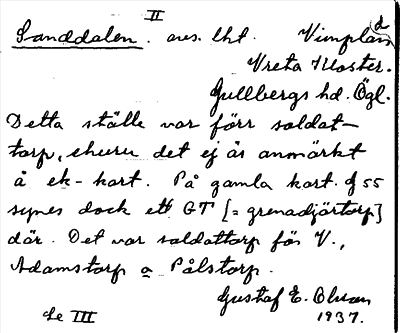 II
Sanddalen. avs. lht. Vimplan 2
Vreta Kloster.
Gullbergs hd. Ögl.
Detta ställe var förr soldat-
torp, ehuru det ej är anmärkt
å ek-kart. På gamla kart. f 55
synes dock ett GT [= grenadjärtorp]
där. Det var soldattorp för V.,
Adamstorp o Pålstorp.
Gustaf E. Olsson
1937.
Le III